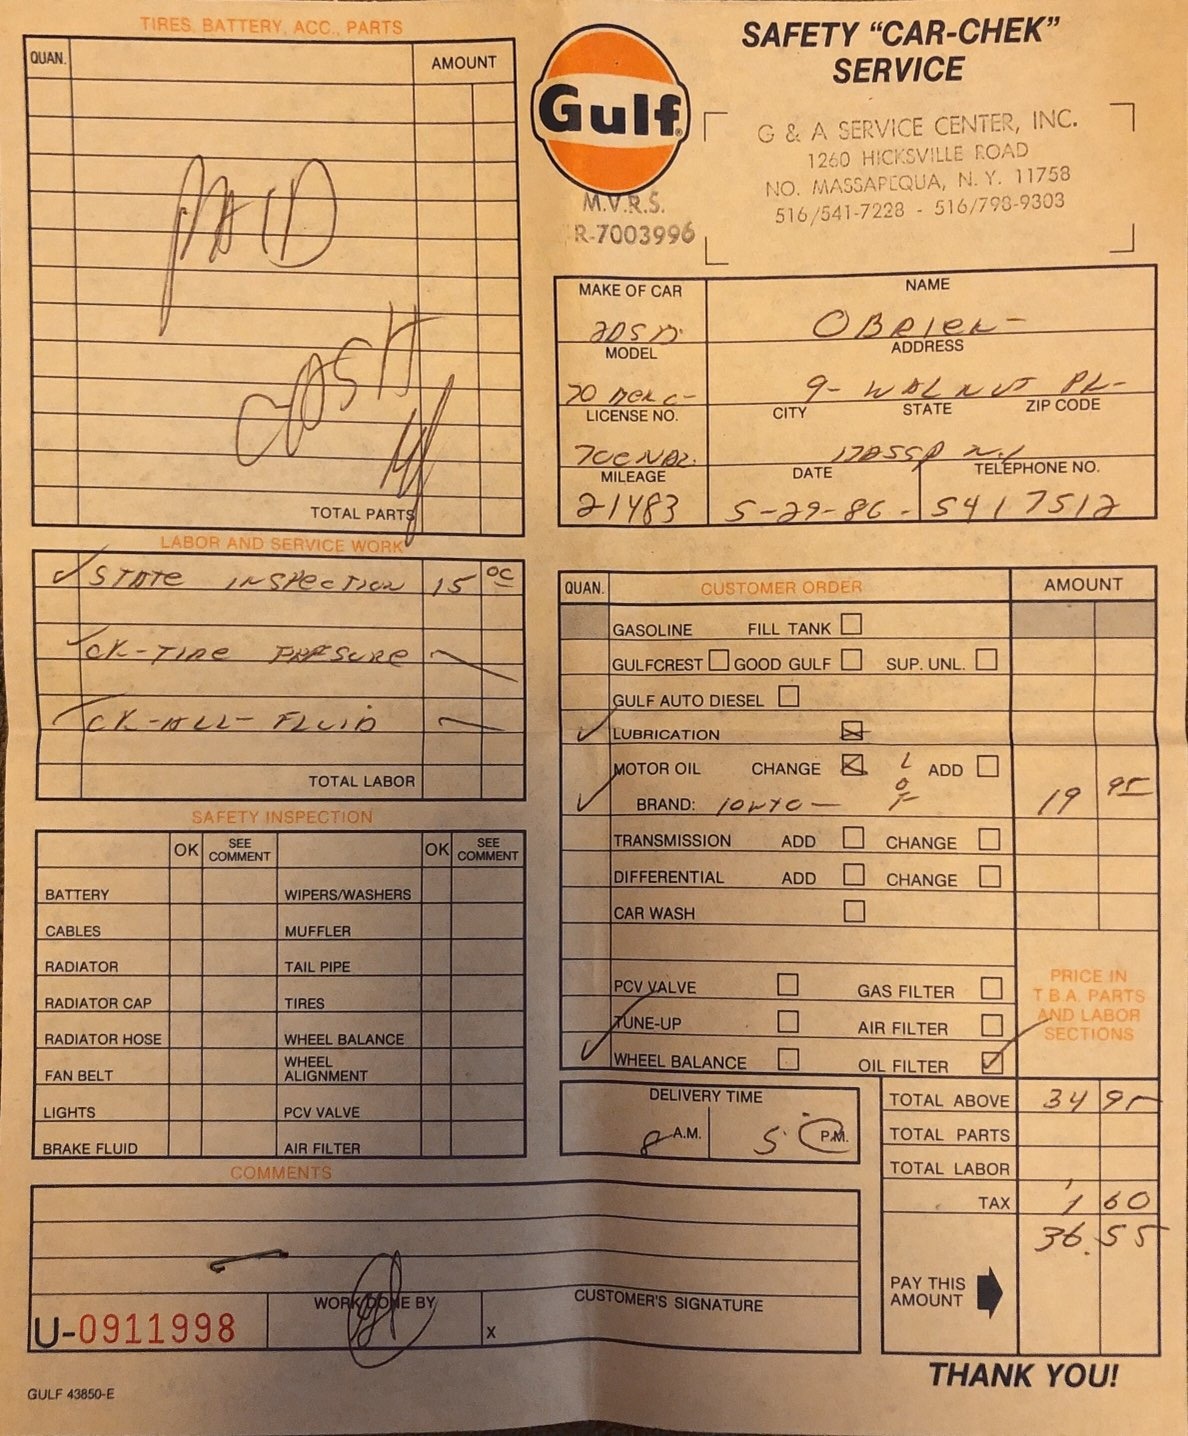 TIRES, BATTERY, ACC., PARTS
QUAN. AMOUNT
PAID
CASH
TOTAL PARTS
Gulf®
SAFETY "CAR-CHEK"
SERVICE
G & A SERVICE CENTER, INC.
1260 HICKSVILLE ROAD
NO. MASSAPEQUA, N.Y. 11758
516/541-7228 - 516/798-9303
M.V.R.S.
R-7003996
MAKE OF CAR NAME
OBRIEN-
MODEL ADDRESS
70 MERC- 9- WALNUT PL-
LICENSE NO. CITY STATE ZIP CODE
MASSP N.Y
MILEAGE DATE TELEPHONE NO.
21483 5-29-86- 541 7512
LABOR AND SERVICE WORK
✓ STATE INSPECTION 15 00
✓ CK-TIRE PRESURE
✓ CK-ALL-FLUID
TOTAL LABOR
SAFETY INSPECTION
OK SEE COMMENT OK SEE COMMENT
BATTERY WIPERS/WASHERS
CABLES MUFFLER
RADIATOR TAIL PIPE
RADIATOR CAP TIRES
RADIATOR HOSE WHEEL BALANCE
FAN BELT WHEEL ALIGNMENT
LIGHTS PCV VALVE
BRAKE FLUID AIR FILTER
COMMENTS
U-0911998 WORK DONE BY X CUSTOMER'S SIGNATURE
GULF 43850-E
QUAN. CUSTOMER ORDER AMOUNT
GASOLINE FILL TANK
GULFCREST GOOD GULF SUP. UNL.
GULF AUTO DIESEL
✓ LUBRICATION
MOTOR OIL CHANGE LOF ADD
✓ BRAND: 10W40- 19 95
TRANSMISSION ADD CHANGE
DIFFERENTIAL ADD CHANGE
CAR WASH
PCV VALVE GAS FILTER
TUNE-UP AIR FILTER
✓ WHEEL BALANCE OIL FILTER
PRICE IN
T.B.A. PARTS
AND LABOR
SECTIONS
DELIVERY TIME
8 A.M. 5 P.M.
TOTAL ABOVE 34 95
TOTAL PARTS
TOTAL LABOR
TAX 1 60
36.55
PAY THIS
AMOUNT
THANK YOU!